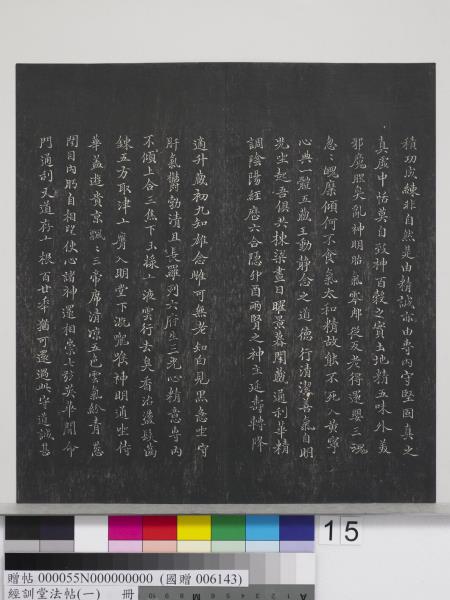 積功成練非自然是由精誠亦由專內守堅固真之
真虛中恬莫自致神百穀之實土地精五味外美
邪魔腥臭亂神明胎氣零那從反老得還嬰三魂
忽〻魄糜傾何不食氣太和精故能不死入黃寧
心典一體五藏王動靜念之道德行清潔善氣自明
光坐起吾俱共棟梁晝日曜景暮閉藏通利華精
調陰陽經歷六合隱卯酉兩腎之神主延壽轉降
適升藏初九知雄念雌可無老知白見黑急坐守
肝氣鬱勃清且長羅列六府生三光心精意專內
不傾上合三焦下玉漿玄液雲行去臭香治蕩髮齒
鍊五方取津玄膺入明堂下溉喉嚨神明通坐侍
華蓋遊貴京飄〻三帝席清涼五色雲氣紛青蔥
閉目內眄自相望使心諸神還相崇七玄英華開命
門通利天道存玄根百廿年猶可還過此守道誠甚
15
贈帖 000055N000000000 (國贈 006143)
經訓堂法帖(一) 冊